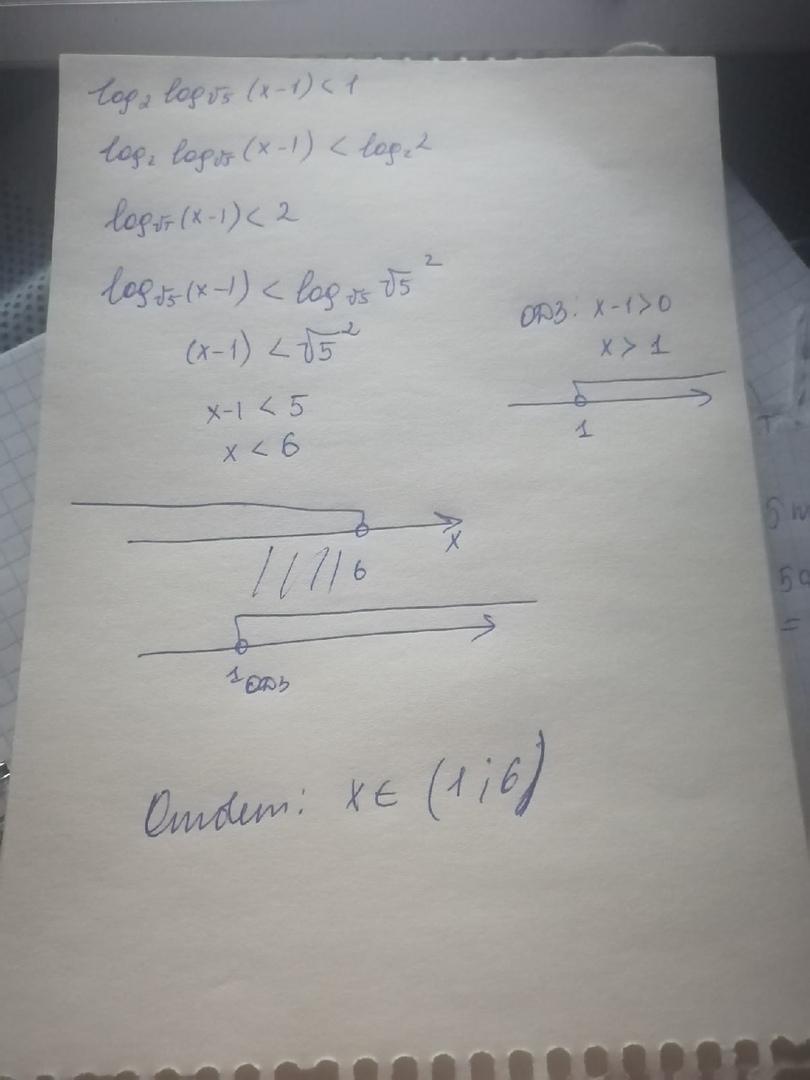 log₂ log√5 (x-1) < 1
log₂ log√5 (x-1) < log₂ 2
log√5 (x-1) < 2
log√5 (x-1) < log√5 √5²
(x-1) < √5²
x-1 < 5
x < 6
ОДЗ: x-1>0
x > 1
1
x
6
1 ОДЗ
Ответ: x ∈ (1;6)